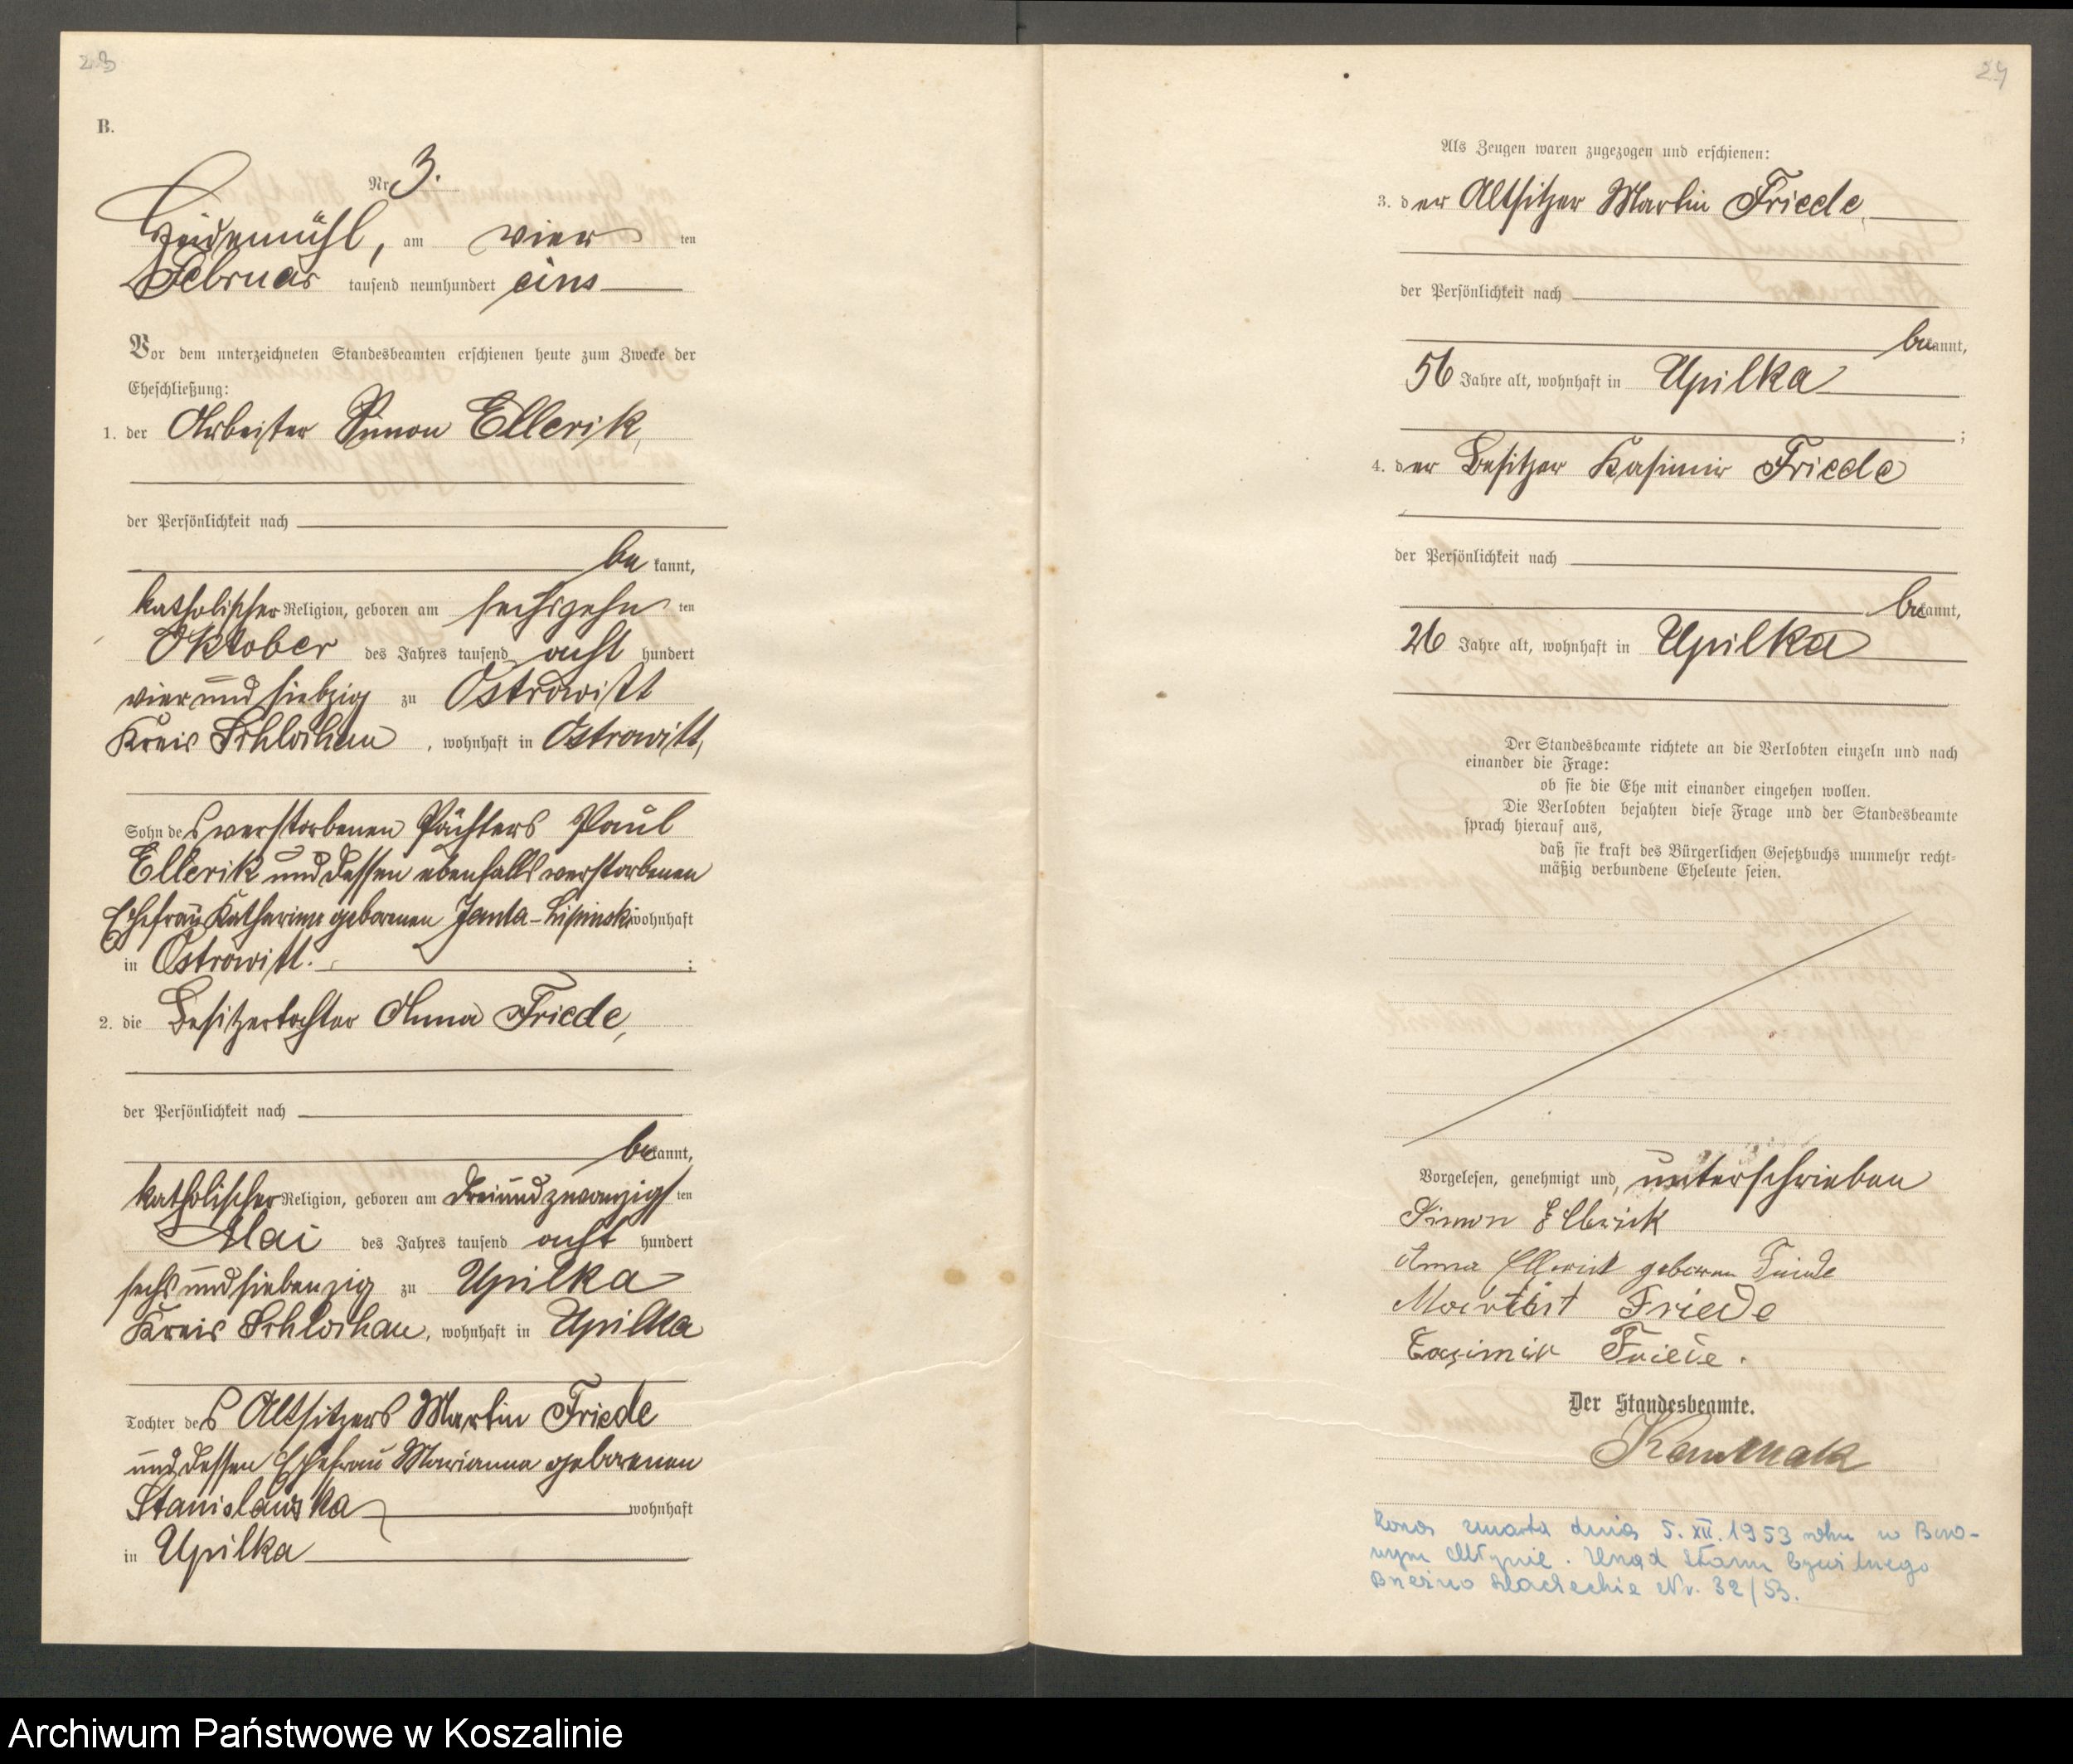 23
B.
Nr 3.
Heidemühl, am vier ten
Februar tausend neunhundert eins
Vor dem unterzeichneten Standesbeamten erschienen heute zum Zwecke der
Eheschließung:
1. der Arbeiter Simon Ellerik,
der Persönlichkeit nach
be kannt,
katholischer Religion, geboren am sechszehn ten
Oktober des Jahres tausend acht hundert
vier und siebzig zu Ostrowitt
Kreis Schlochau, wohnhaft in Ostrowitt,
Sohn des verstorbenen Pächters Paul
Ellerik und dessen ebenfalls verstorbenen
Ehefrau Katharina geborenen Janta-Lipinski wohnhaft
in Ostrowitt. ;
2. die Besitzertochter Anna Friede,
der Persönlichkeit nach
be kannt,
katholischer Religion, geboren am dreiundzwanzigs ten
Mai des Jahres tausend acht hundert
sechs und siebenzig zu Upilka
Kreis Schlochau, wohnhaft in Upilka
Tochter des Altsitzers Martin Friede
und dessen Ehefrau Marianna geborenen
Stanislawska wohnhaft
in Upilka
24
Als Zeugen waren zugezogen und erschienen:
3. der Altsitzer Martin Friede
der Persönlichkeit nach
be kannt,
56 Jahre alt, wohnhaft in Upilka
;
4. der Besitzer Kasimir Friede
der Persönlichkeit nach
be kannt,
26 Jahre alt, wohnhaft in Upilka
Der Standesbeamte richtete an die Verlobten einzeln und nach
einander die Frage:
ob sie die Ehe mit einander eingehen wollen.
Die Verlobten bejahten diese Frage und der Standesbeamte
sprach hierauf aus,
daß sie kraft des Bürgerlichen Gesetzbuchs nunmehr recht-
mäßig verbundene Eheleute seien.
Vorgelesen, genehmigt und unterschrieben
Simon Ellerik
Anna Ellerick geboren Friede
Friede
Casimir Friede.
Der Standesbeamte.
żona zmarła dnia 5. XII. 1953 roku w Boro-
wym Młynie. Urząd Stanu Cywilnego
Brzeźno Szlacheckie Nr. 32/53.
Archiwum Państwowe w Koszalinie